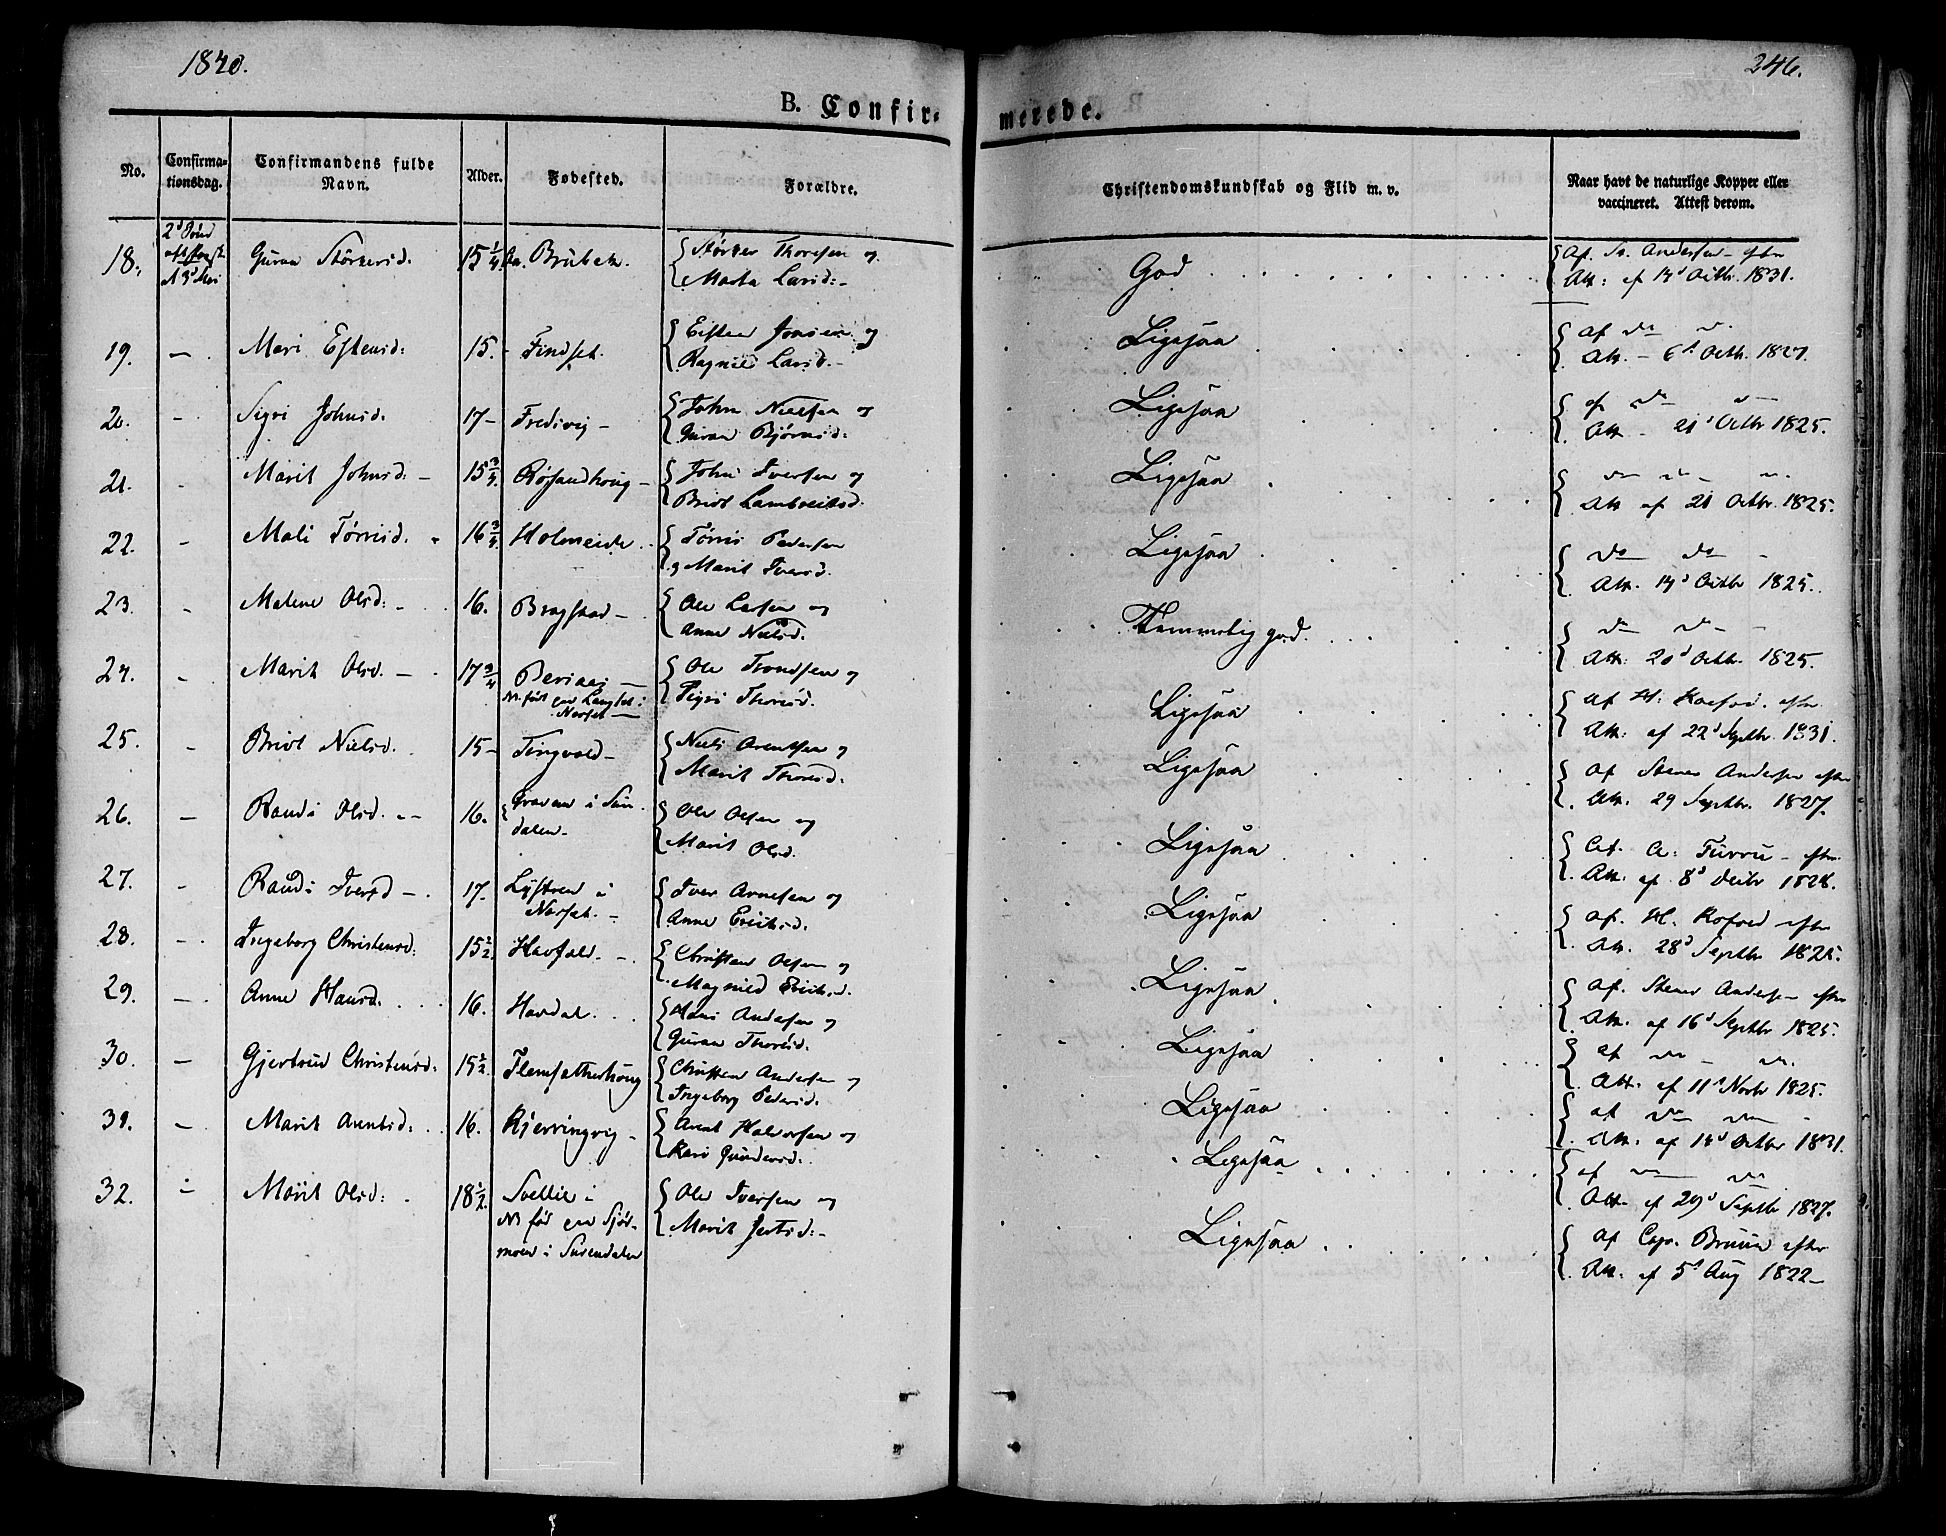 1840.
246.
B. Confir-
merede.
No.
Confirma-
tionsdag.
Confirmandens fulde
Navn.
Alder.
Fødested.
Forældre.
Christendomskundskab og Flid m. v.
Naar havt de naturlige Kopper eller
vaccineret. Attest derom.
18. Guraa Størkersd. 15 1/4 Brubak. Størker Thoresen og
Marta Larsd:
God
Af St. Andersen efter
Att: af 14d Octbr. 1831.
19. — Mari Estensd: 15. Findset. Esten Jonsen og
Ragnild Larsd.
Ligesaa
af do do
Att. 6d Octb. 1827.
20. — Sigri Johnsd. 17 — Fredsvig — John Nielsen og
Guraa Bjørnsd:
Ligesaa
af do
Att. 21d Octbr 1825.
21. — Marit Johnsd: — 15 3/4 Røsandhoug — John Iversen og
Brit Lambreitsd.
Ligesaa
do do
Att af 21 Octbr. 1825.
22. — Mali Tørrisd. 16 3/4 Holmeide Tørris Pedersen
og Marit Iversd.
Ligesaa
do do
Att. 14d Octbr 1825.
23. — Malene Olsd: 16. Bragstad — Ole Larsen og
Anne Nielsd.
Temmelig god.
do do
Att: 20d Octb. 1825.
24. — Marit Olsd. 17 3/4 Ole Trondsen og
Sigri Thoresd.
Ligesaa
af H. efter
Att: af 22d Septbr. 1831.
25. — Brit Nielsd. 15 — Tingvold — Niels Arentsen og
Marit Thoresd:
Ligesaa
af Stener Andersen efter
Att. 29 Septbr. 1827.
26. — Randi Olsd. 16. i Sun-
dalen Ole Olsen og
Marit Olsd.
Ligesaa
Af A: efter
Att: af 8d
27. — Randi Iversd — 17. i
Nesset. Iver Arnesen og
Anne Erichsd.
Ligesaa
af. H. Kofoed efter
Att. 28d Septbr 1825.
28. — Ingeborg Christensd: 15 1/2 Christen Olsen og
Magnild Erichsd.
Ligesaa
af. Stener Andersen efter
Att. af 16d Septbr 1825.
29. — Anne Hansd. 16. Havdal. Hans Andersen og
Guraa Thoresd.
Ligesaa
af do do
Att. af 11d Novbr 1825.
30. — Gjertrud Christensd: 15 1/2 Christen Andersen og
Ingeborg Pedersd.
Ligesaa
af do do
Att. af 14d Octbr 1831.
31. — Marit Arentsd: 16. Kjerringvig — Arent Halvorsen og
Kari Gundersd.
Ligesaa
af do do
Att. af 29d Septbr 1827.
32. — Marit Olsd: 18 1/2.
i Surendalen Ole Iversen og
Marit
Ligesaa
af Cap. Bruun efter
Att: af 5d Aug 1822 —